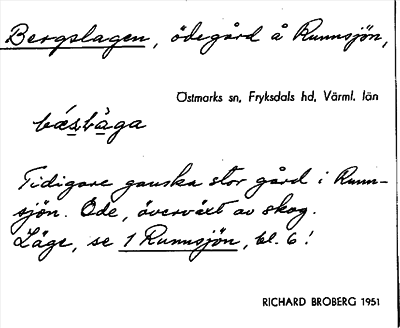 Bergslagen, ödegård å Runnsjön,
Östmarks sn, Fryksdals hd, Värml. län
bæ̀sbàga
Tidigare ganska stor gård i Runn-
sjön. Öde, överväxt av skog.
Läge, se 1 Runnsjön, bl. 6!
RICHARD BROBERG 1951